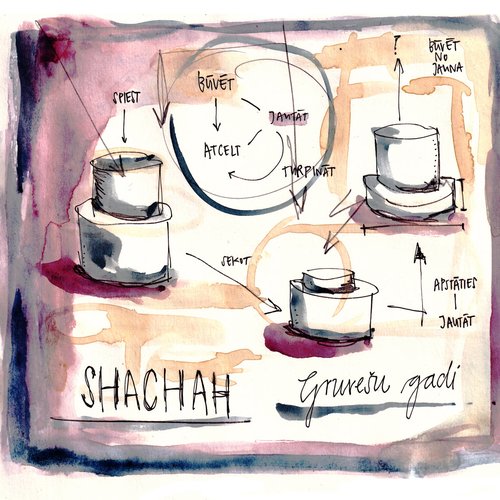 SPIEST
BŪVĒT
JAUTĀT
ATCELT
TURPINĀT
?
BŪVĒT
NO
JAUNA
SEKOT
APSTĀTIES
|
JAUTĀT
SHACHAH
Gruvešu gadi